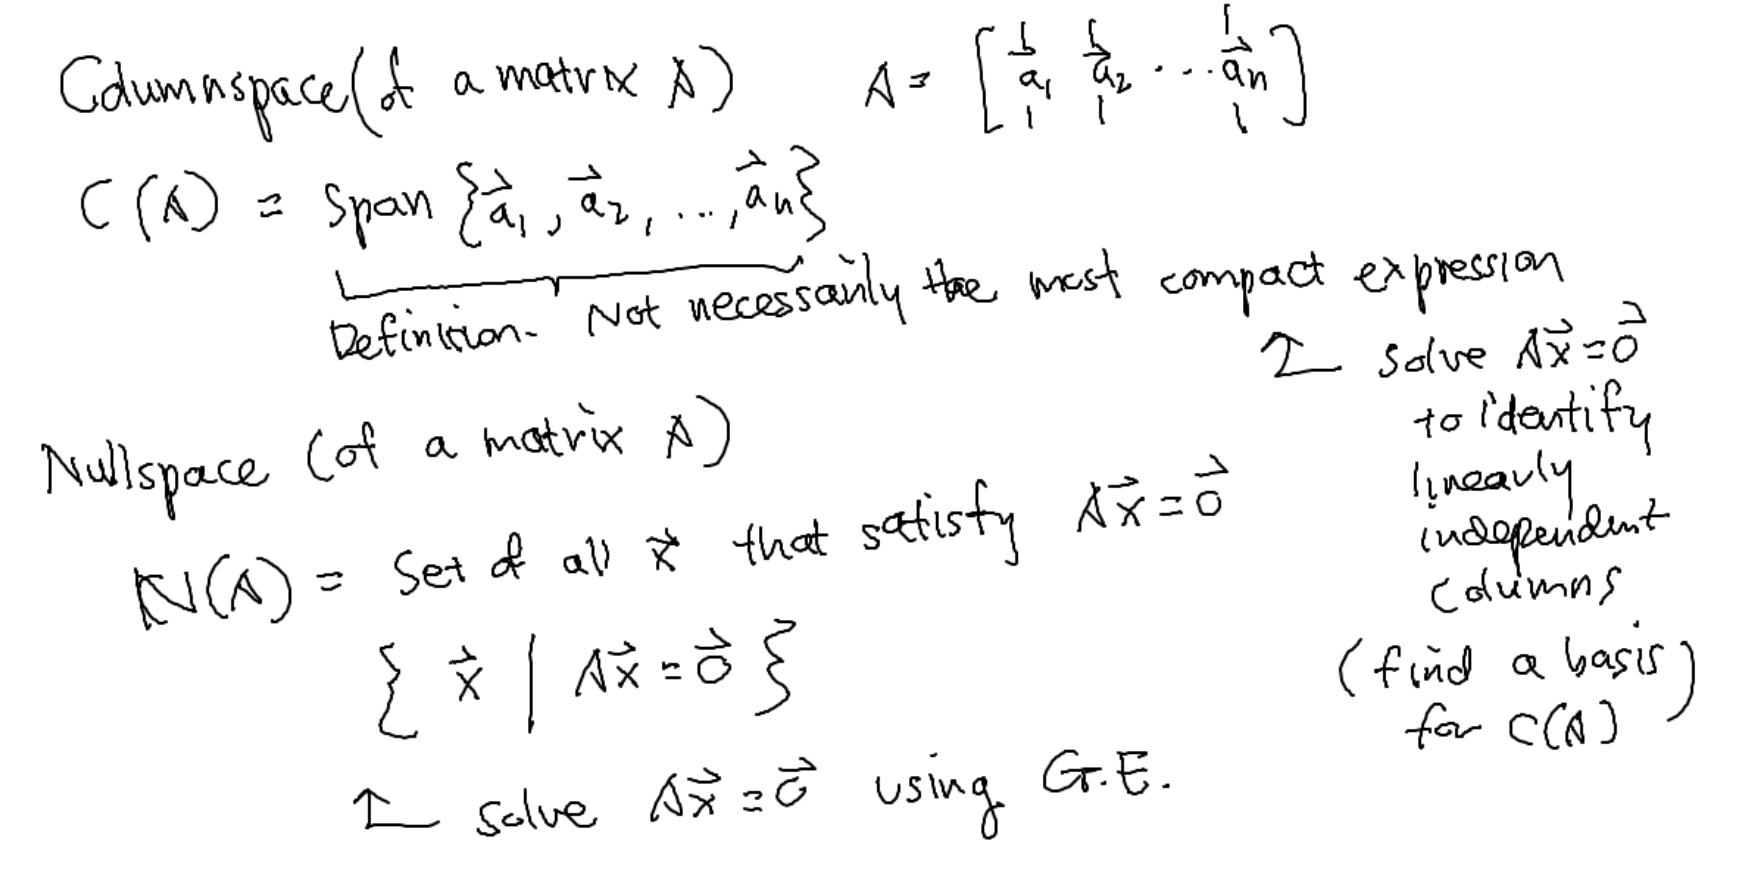 Columnspace (of a matrix A) A = [a⃗₁ a⃗₂ ... a⃗ₙ]
C(A) = Span {a⃗₁, a⃗₂, ..., a⃗ₙ}
Definition. Not necessarily the most compact expression
↑ solve Ax⃗ = 0⃗
to identify
linearly
independent
columns
(find a basis
for C(A))
Nullspace (of a matrix A)
N(A) = Set of all x⃗ that satisfy Ax⃗ = 0⃗
{ x⃗ | Ax⃗ = 0⃗ }
↑ solve Ax⃗ = 0⃗ using G.E.